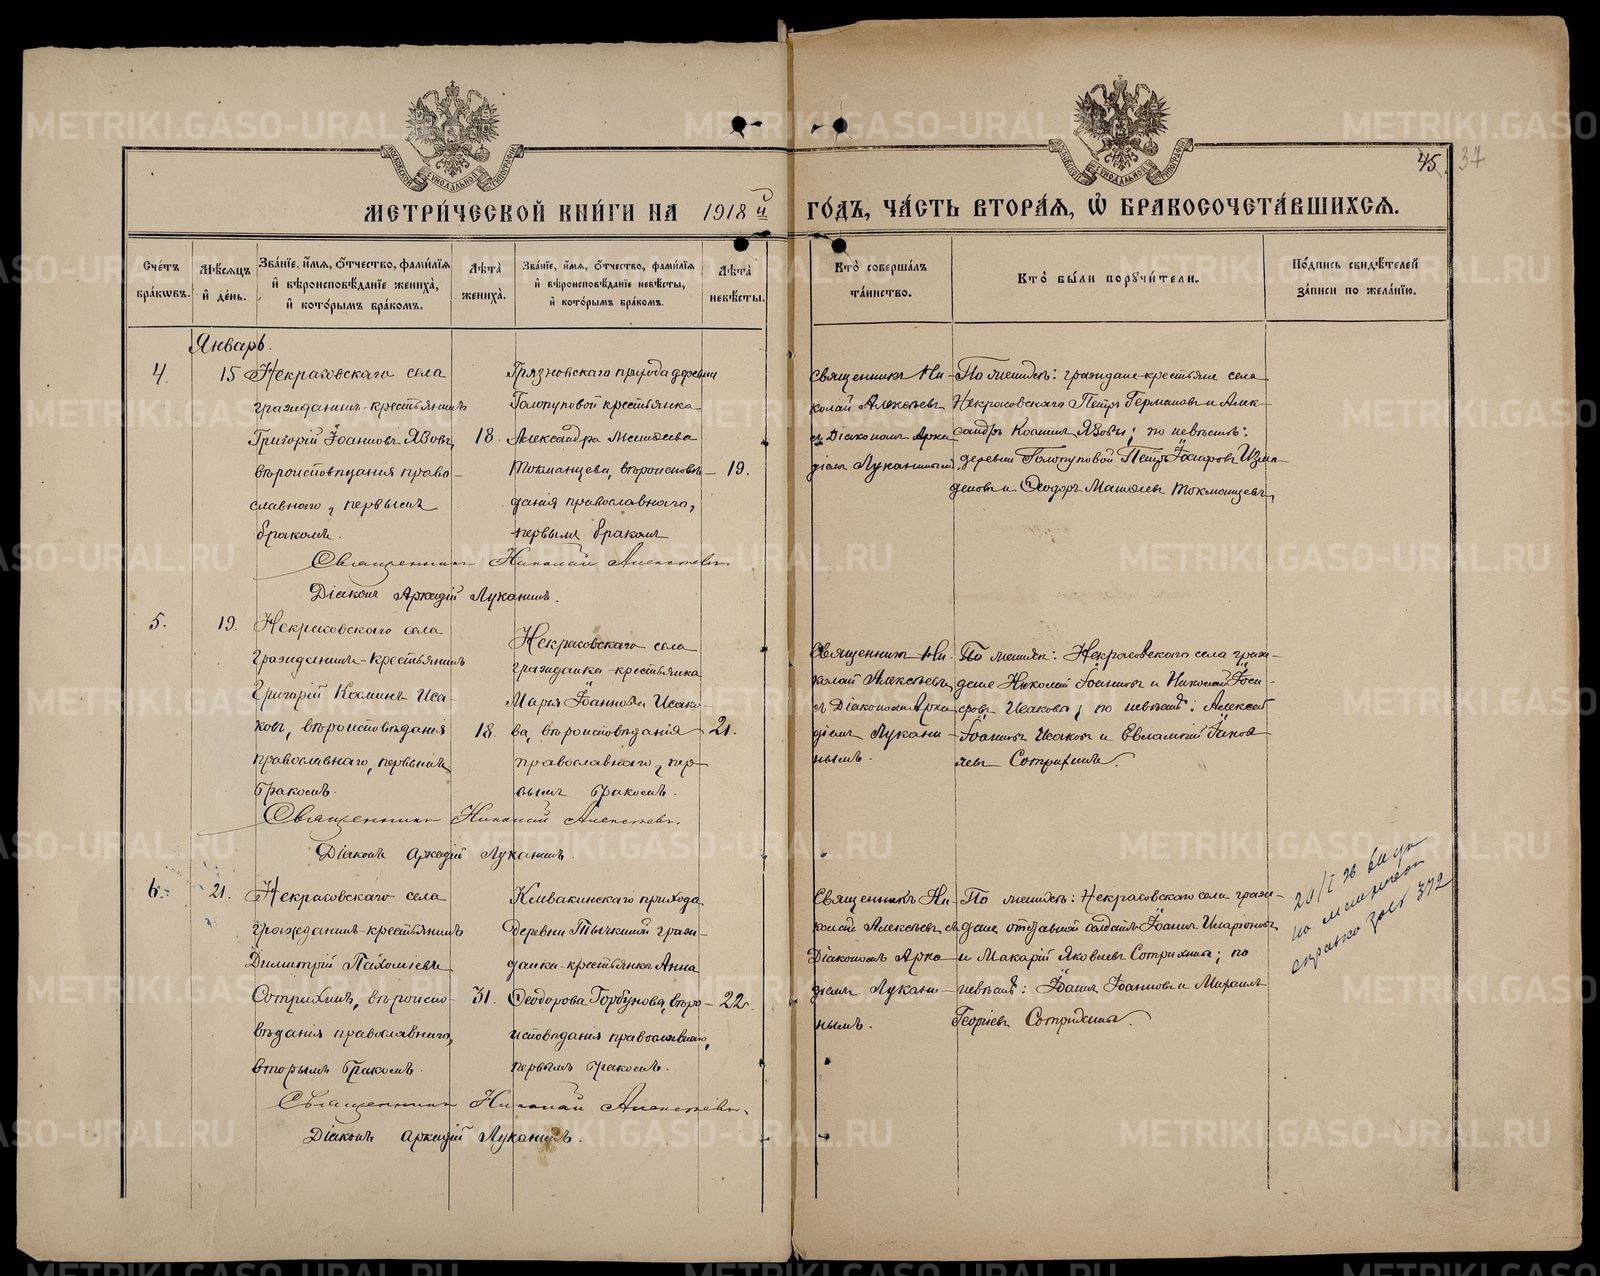 МЕТРИ́ЧЕСКОЙ КНИ́ГИ НА 1918 й ГО́ДЪ, ЧА́СТЬ ВТОРА́Я, Ѡ҆ БРАКОСОЧЕТА́ВШИХСЯ.
45
37
Сче́тъ бра́ковъ.
Мѣ́сяцъ и҆ де́нь.
Зва́нїе, и҆́мя, ѻ҆́тчество, фами́лїя и҆ вѣроисповѣ́данїе жениха̀, и҆ кото́рымъ бра́комъ.
Лѣ́та жениха̀.
Зва́нїе, и҆́мя, ѻ҆́тчество, фами́лїя и҆ вѣроисповѣ́данїе невѣ́сты, и҆ кото́рымъ бра́комъ.
Лѣ́та невѣ́сты.
Кто̀ соверша́лъ та́инство.
Кто̀ бы́ли порꙋчи́тели.
По́дпись свидѣ́телей за́писи по жела́нїю.
Январь.
4.
15
Некрасовскаго села
гражданинъ-крестьянинъ
Григорій Іоанновъ Язовъ,
вѣроисповѣданія право-
славнаго, первымъ
бракомъ.
18.
Грязновскаго прихода деревни
Голопуповой крестьянка
Александра Матѳеева
Токманцева, вѣроисповѣ-
данія православнаго,
первымъ бракомъ
19.
Священникъ Ни-
колай Алексѣевъ
съ Діакономъ Арка
діемъ Луканинымъ
По женихѣ: граждане-крестьяне села
Некрасовскаго Петръ Германовъ и Алек-
сандръ Косминъ Язовы; по невѣстѣ:
деревни Голопуповой Петръ
и Ѳеодоръ Матѳеевъ Токманцевъ,
Священникъ Николай Алексѣевъ.
Діаконъ Аркадій Луканинъ.
5.
19.
Некрасовскаго села
гражданинъ-крестьянинъ
Григорій Косминъ Иса-
ковъ, вѣроисповѣданія
православнаго, первымъ
бракомъ.
18.
Некрасовскаго села
гражданка-крестьянка
Марья Іоаннова Исако-
ва, вѣроисповѣданія
православнаго, пер-
вымъ бракомъ.
21.
Священникъ Ни-
колай Алексѣевъ
съ Діакономъ Арка
діемъ Лукани-
нымъ.
По женихѣ: Некрасовскаго села граж-
дане Николай Іоанновъ и Николай Іоси-
фовъ Исаковы; по невѣстѣ: Алексѣй
Іоанновъ Исаковъ и Евлампій Іаков-
левъ Сотрихинъ.
Священникъ Николай Алексѣевъ.
Діаконъ Аркадій Луканинъ.
6.
21.
Некрасовскаго села
гражданинъ-крестьянинъ
Димитрій Пахоміевъ
Сотрихинъ, вѣроиспо-
вѣданія православнаго,
вторымъ бракомъ.
31.
Клевакинскаго прихода
деревни Тычкиной граж-
данка-крестьянка Анна
Ѳеодорова Горбунова, вѣро-
исповѣданія православнаго,
первымъ бракомъ.
22.
Священникъ Ни-
колай Алексѣевъ съ
Діакономъ Арка
діемъ Лукани-
нымъ.
По женихѣ: Некрасовскаго села граж-
дане отставной солдатъ Іоаннъ Иларіоновъ
и Макарій Яковлевъ Сотрихины; по
невѣстѣ: Іоаннъ Іоанновъ и Михаилъ
Георгіевъ Сотрихины.
справка 372
Священникъ Николай Алексѣевъ.
Діаконъ Аркадій Луканинъ.
METRIKI.GASO-URAL.RU